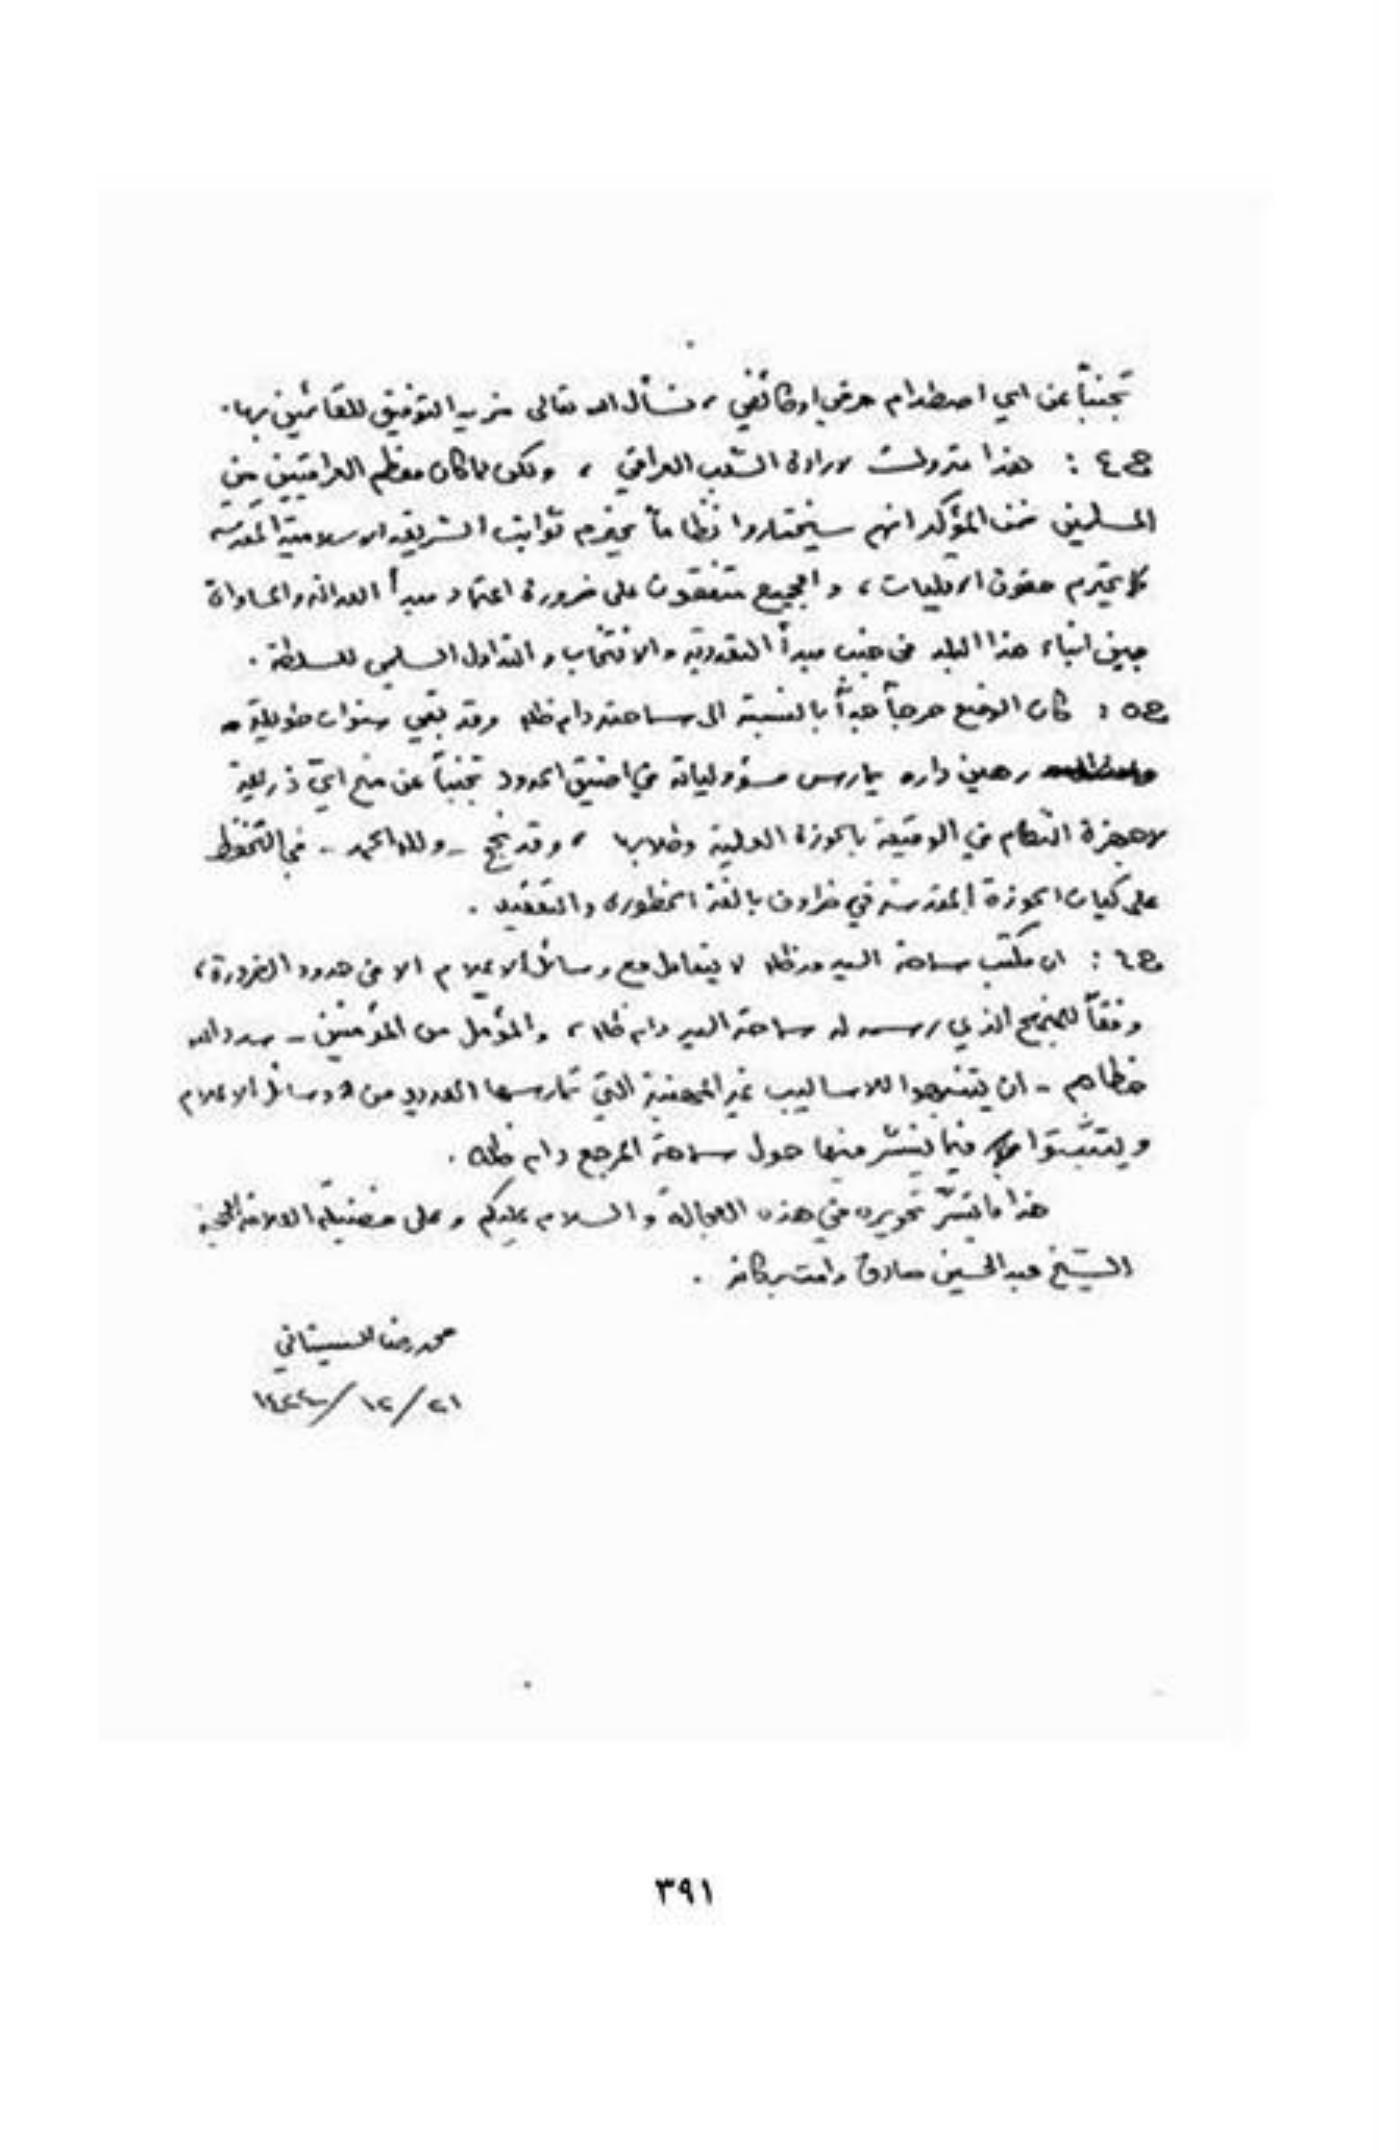 تجنباً عن اي اصطدام عرقي او طائفي ، نسأل الله تعالى مزيد التوفيق للقائمين بها .
ج٤ : هذا متروك لارادة الشعب العراقي ، ولكن لما كان معظم العراقيين من
المسلمين فمن المؤكد انهم سيختاروا نظاماً يحترم ثوابت الشريعة الاسلامية المقدسة
كما يحترم حقوق الاقليات ، والجميع متفقون على ضرورة اعتماد مبدأ العدالة والمساواة
بين ابناء هذا البلد في جنب مبدأ التعددية والانتخاب والتداول السلمي للسلطة .
ج٥ : كان الوضع حرجاً جداً بالنسبة الى سماحته دام ظله وقد بقي سنوات طويلة
رهين داره يمارس مسؤولياته في اضيق الحدود تجنباً عن منح اي ذريعة
لاجهزة النظام في الوقيعة بالحوزة العلمية وطلابها ، وقد نجح - ولله الحمد - في التحفظ
على كيان الحوزة المقدسة في ظروف بالغة الخطورة والتعقيد .
ج٦ : ان مكتب سماحة السيد مد ظله لا يتعامل مع وسائل الاعلام الا في حدود الضرورة ،
وفقاً للمنهج الذي رسمه له سماحة السيد دام ظله ، والمؤمل من المؤمنين - سدد الله
خطاهم - ان يتنبهوا للاساليب غير المهنية التي تمارسها العديد من وسائل الاعلام
ويتثبتوا فيما ينشر منها حول سماحة المرجع دام ظله .
هذا ما تيسّر تحريره في هذه العجالة والسلام عليكم وعلى فضيلة العلامة الحجة
الشيخ عبد الحسين صادق دامت بركاته .
محمد رضا السيستاني
٢١/ ١٢/ ١٤٢٤
٣٩١